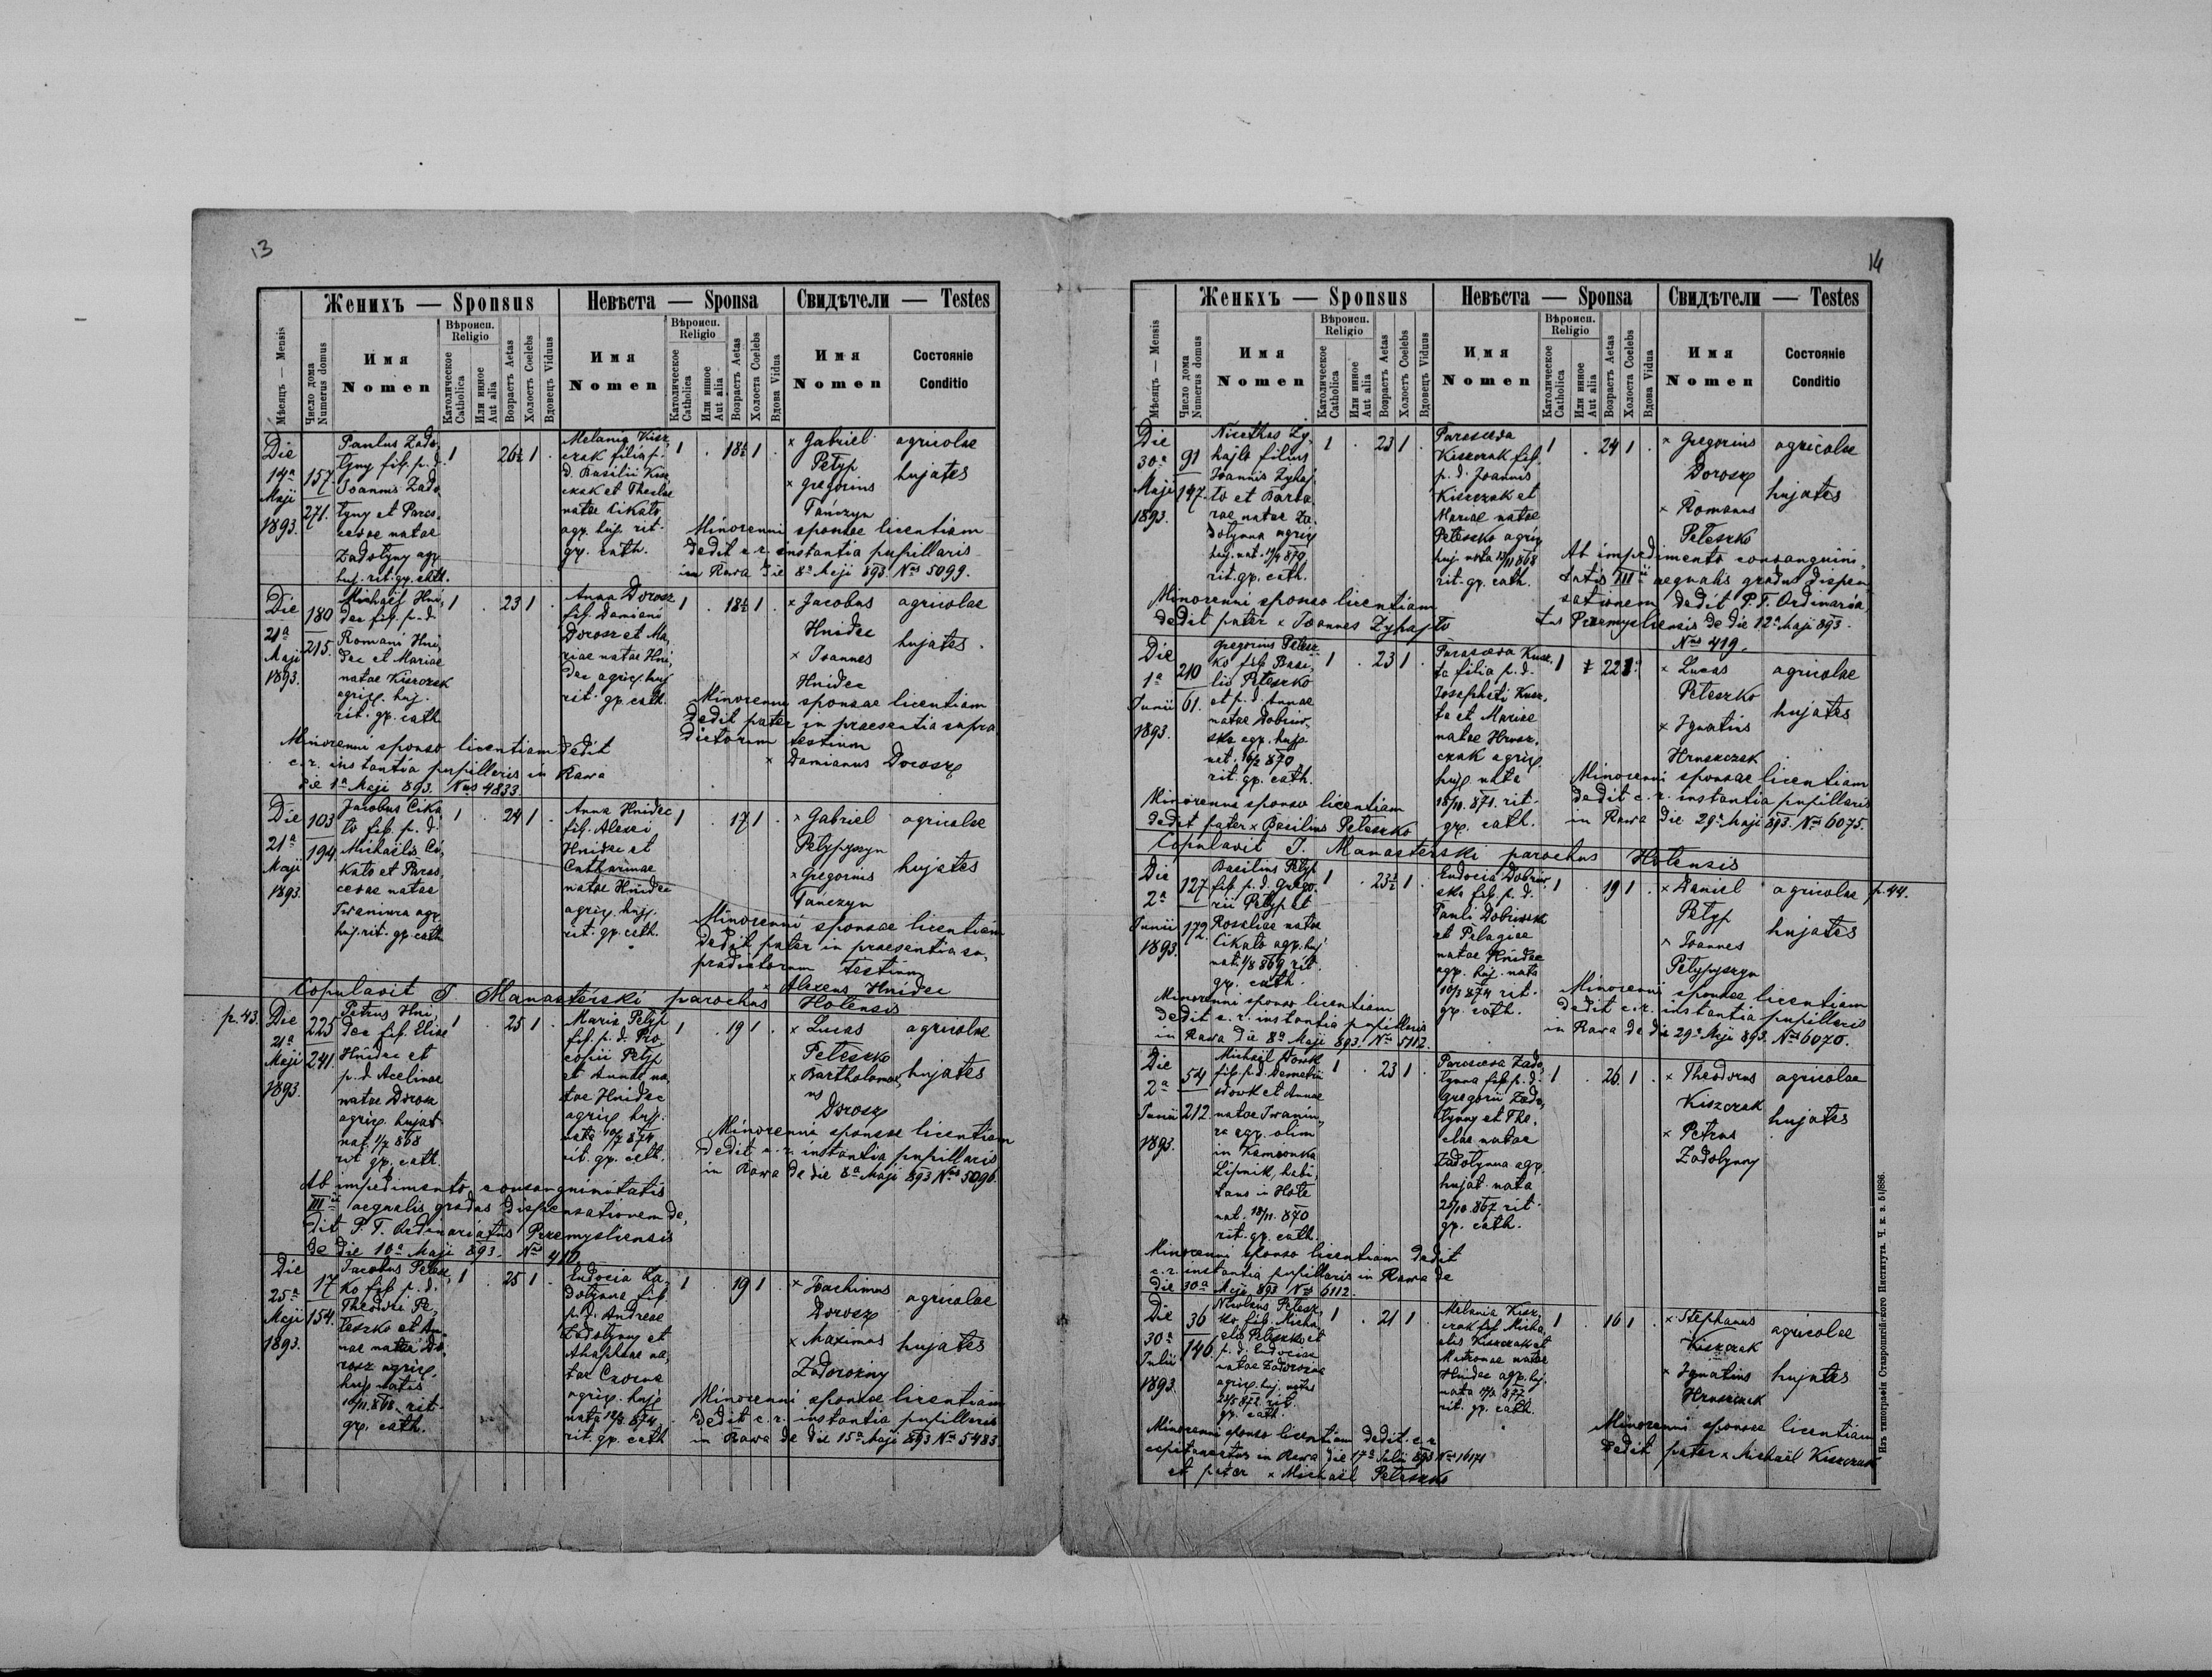 13
Женихъ — Sponsus
Невѣста — Sponsa
Свидѣтели — Testes
Мѣсяцъ — Mensis
Число дома
Numerus domus
Имя
Nomen
Вѣроисп.
Religio
Католическое
Catholica
Или инное
Aut alia
Возрастъ Aetas
Холостъ Coelebs
Вдовецъ Viduus
Имя
Nomen
Вѣроисп.
Religio
Католическое
Catholica
Или инное
Aut alia
Возрастъ Aetas
Холоста Coelebs
Вдова Vidua
Имя
Nomen
Состояніе
Conditio
Die
14a
Maji
1893.
157
271.
Paulus Zado
tyny fil. p. d.
Joannis Zado
tyny et Paras
cevae natae
Zadotyny agr.
huj. rit. gr. cath.
1 . 26½ 1 .
Melania Kisz
czak filia p.
d. Basilii Kisz
czak et Theclae
natae Cikato
agr. huj. rit.
gr. cath.
1 . 18½ 1 .
× Gabriel
Petyp
× Gregorius
Tanczyn
agricolae
hujates
Minorenni sponsae licentiam
dedit c. r. instantia pupillaris
in Rawa die 8a Maji 893. Nus 5099.
Die
21a
Maji
1893.
180
215.
Michael Hni,
dec fil. p. d.
Romani Hni,
dec et Mariae
natae Kiszczak
agric. huj.
rit. gr. cath
1 . 23 1 .
Anna Dorosz
fil. Damiani
Dorosz et Ma,
riae natae Hni,
dec agric. huj
rit. gr. cath.
1 . 18½ 1 .
× Jacobus
Hnidec
× Joannes
Hnidec
agricolae
hujates.
Minorenni sponsae licentiam
dedit pater in praesentia supra
dictorum testium
× Damianus Dorosz
Minorenni sponso licentiam dedit
c. r. instantia pupillaris in Rawa
die 1a Maji 893. Nus 4833.
Die
21a
Maji
1893.
103
194
Jacobus Cika
to fil. p. d.
Michaëlis Ci,
kato et Paras
cevae natae
Iwaniura agr.
huj. rit. gr. cath
1 . 24 1 .
Anna Hnidec
fil. Alexei
Hnidec et
Catharinae
natae Hnidec
agric. huj.
rit. gr. cath.
1 . 17 1 .
× Gabriel
Petypyszyn
× Gregorius
Tanczyn
agricolae
hujates
Minorenni sponsae licentiam
dedit pater in praesentia su,
pradictorum testium
× Alexeus Hnidec
Copulavit T. Manasterski parochus Hotensis
p. 43.
Die
21a
Maji
1893.
225
241.
Petrus Hni,
dec fil. Eliae
Hnidec et
p. d. Acelinae
natae Dorosz
agric. hujat
nat. 1/7 868
rit gr. cath.
1 . 25 1 .
Maria Petyp
fil. p. d. Pro,
copii Petyp
et Annae na,
tae Hnidec
agric. huj.
nata 10/7 874
rit. gr. cath.
1 . 19 1 .
× Lucas
Peteszko
× Bartholomae,
us
Dorosz
agricolae
hujates
Minorenni sponsae licentiam
dedit c. r. instantia pupillaris
in Rawa de die 8a Maji 893 Nus 5096.
Ab impedimento consanguinitatis
IIIii aequalis gradus dispensationem de,
dit P. T. Ordinariatus Przemysliensis
de die 10a Maji 893. Nus 410.
Die
25a
Maji
1893.
17
154.
Jacobus Petesz,
ko fil. p. d.
Theodori Pe,
teszko et An,
nae natae Do,
rosz agric.
huj. natus
10/11 868. rit.
gr. cath.
1 . 25 1 .
Eudocia Za,
dotynna fil.
p. d. Andreae
Zadotyny et
Ahaphiae na,
tae Czorna
agric. huj.
nata 12/3 874
rit. gr. cath
1 . 19 1 .
× Joachimus
Dorosz
× Maximus
Zadorozny
agricolae
hujates
Minorenni sponsae licentiam
dedit c. r. instantia pupillaris
in Rawa de die 15a Maji 893 Nus 5483.
14
Женихъ — Sponsus
Невѣста — Sponsa
Свидѣтели — Testes
Мѣсяцъ — Mensis
Число дома
Numerus domus
Имя
Nomen
Вѣроисп.
Religio
Католическое
Catholica
Или инное
Aut alia
Возрастъ Aetas
Холостъ Coelebs
Вдовецъ Viduus
Имя
Nomen
Вѣроисп.
Religio
Католическое
Catholica
Или инное
Aut alia
Возрастъ Aetas
Холоста Coelebs
Вдова Vidua
Имя
Nomen
Состояніе
Conditio
Die
30a
Maji
1893.
91
147.
Nicethas Zy,
hajto filius
Joannis Zyhaj,
to et Barba
rae natae Za,
dotynna agric
huj. nat. 14/4 870
rit. gr. cath.
1 . 23 1 .
Parasceva
Kiszczak fil.
p. d. Joannis
Kiszczak et
Mariae natae
Peteszko agric
huj. nata 13/11 868
rit. gr. cath.
1 . 24 1 .
× Gregorius
Dorosz
× Romanus
Peteszko
agricolae
hujates
Ab impedimento consanguini,
tatis IIIii aequalis gradus dispen
sationem dedit P. T. Ordinaria,
tus Przemysliensis de die 12a Maji 893.
Nus 419.
Minorenni sponso licentiam
dedit pater × Joannes Zyhajto
Die
1a
Junii
1893.
210
61.
Gregorius Petesz
ko fil. Basi,
lii Peteszko
et p. d. Annae
natae Dobriw,
ska agr. huj.
nat. 16/2 870
rit. gr. cath.
1 . 23 1 .
Parasceva Kusz,
ta filia p. d.
Josaphati Kusz,
ta et Mariae
natae Hrusz,
czak agric.
huj. nata
18/10. 871. rit.
gr. cath.
1 22 1
× Lucas
Peteszko
× Ignatius
Hruszczak
agricolae
hujates
Minorenni sponsae licentiam
dedit c. r. instantia pupillaris
in Rawa die 29a Maji 893. Nus 6075.
Minorenni sponso licentiam
dedit pater × Basilius Peteszko
Copulavit T. Manasterski parochus Hotensis
Die
2a
Junii
1893.
127
172.
Basilius Petyp
fil. p. d. Grego,
rii Petyp et
Rosaliae natae
Cikato agr. huj
nat. 1/8 869 rit.
gr. cath.
1 . 23½ 1 .
Eudocia Dobriw,
ska fil. p. d.
Pauli Dobriwsk
et Pelagiae
natae Hnidec
agr. huj. nata
10/3 874 rit.
gr. cath.
1 . 19 1 .
× Daniel
Petyp
× Joannes
Petypyszyn
agricolae
hujates
p. 44.
Minorenni sponsae licentiam
dedit c. r. instantia pupillaris
in Rawa de die 29a Maji 893. Nus 6070.
Minorenni sponso licentiam
dedit c. r. instantia pupillaris
in Rawa die 8a Maji 893. Nus 5112.
Die
2a
Junii
1893.
54
212
Michaël Wowk
fil. p. d. Demetrii
Wowk et Annae
natae Iwaniu,
ra agr. olim
in Kamionka
Lipnik, habi,
tans in Hole
nat. 19/11. 870
rit. gr. cath.
1 . 23 1 .
Parasceva Zado,
tynna fil. p. d.
Gregorii Zado,
tynny et The,
clae natae
Zadotynna agr.
hujat. nata
25/10. 867 rit.
gr. cath.
1 . 26 1 .
× Theodorus
Kiszczak
× Petrus
Zadotynny
agricolae
hujates
Minorenni sponso licentiam dedit
c. r. instantia pupillaris in Rawa de
die 30a Maji 893 Nus 6112.
Die
30a
Julii
1893.
36
146
Nicolaus Petesz,
ko fil. Micha,
elis Peteszko et
p. d. Eudociae
natae Zadorozna
agric. huj. natus
24/5 872. rit.
gr. cath.
1 . 21 1 .
Melania Kisz,
czak fil. Micha
elis Kiszczak et
Matronae natae
Hnidec agr. huj.
nata 17/1 877
rit. gr. cath.
1 . 16 1 .
× Stephanus
Kiszczak
× Ignatius
Hruszczak
agricolae
hujates
Minorenni sponso licentiam dedit c. r.
capitaneatus in Rawa die 17a Julii 893 Nus 16171
et pater × Michaël Peteszko
Minorenni sponsae licentiam
dedit pater × Michaël Kiszczak
Изъ типографіи Ставропигійского Института. Ч. к. з. 51/886.